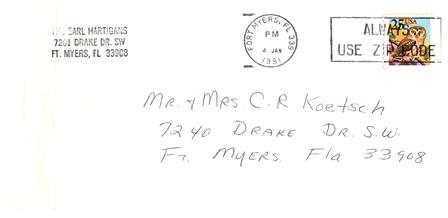 THE EARL HARTIGANS
7201 DRAKE DR. SW
FT. MYERS, FL 33908
FORT MYERS, FL 339
PM
4 JAN
1991
ALWAYS
USE ZIP CODE
25
Mr. & Mrs C. R Koetsch
7240 DRAKE DR. S.W.
FT. MYERS. Fla 33908